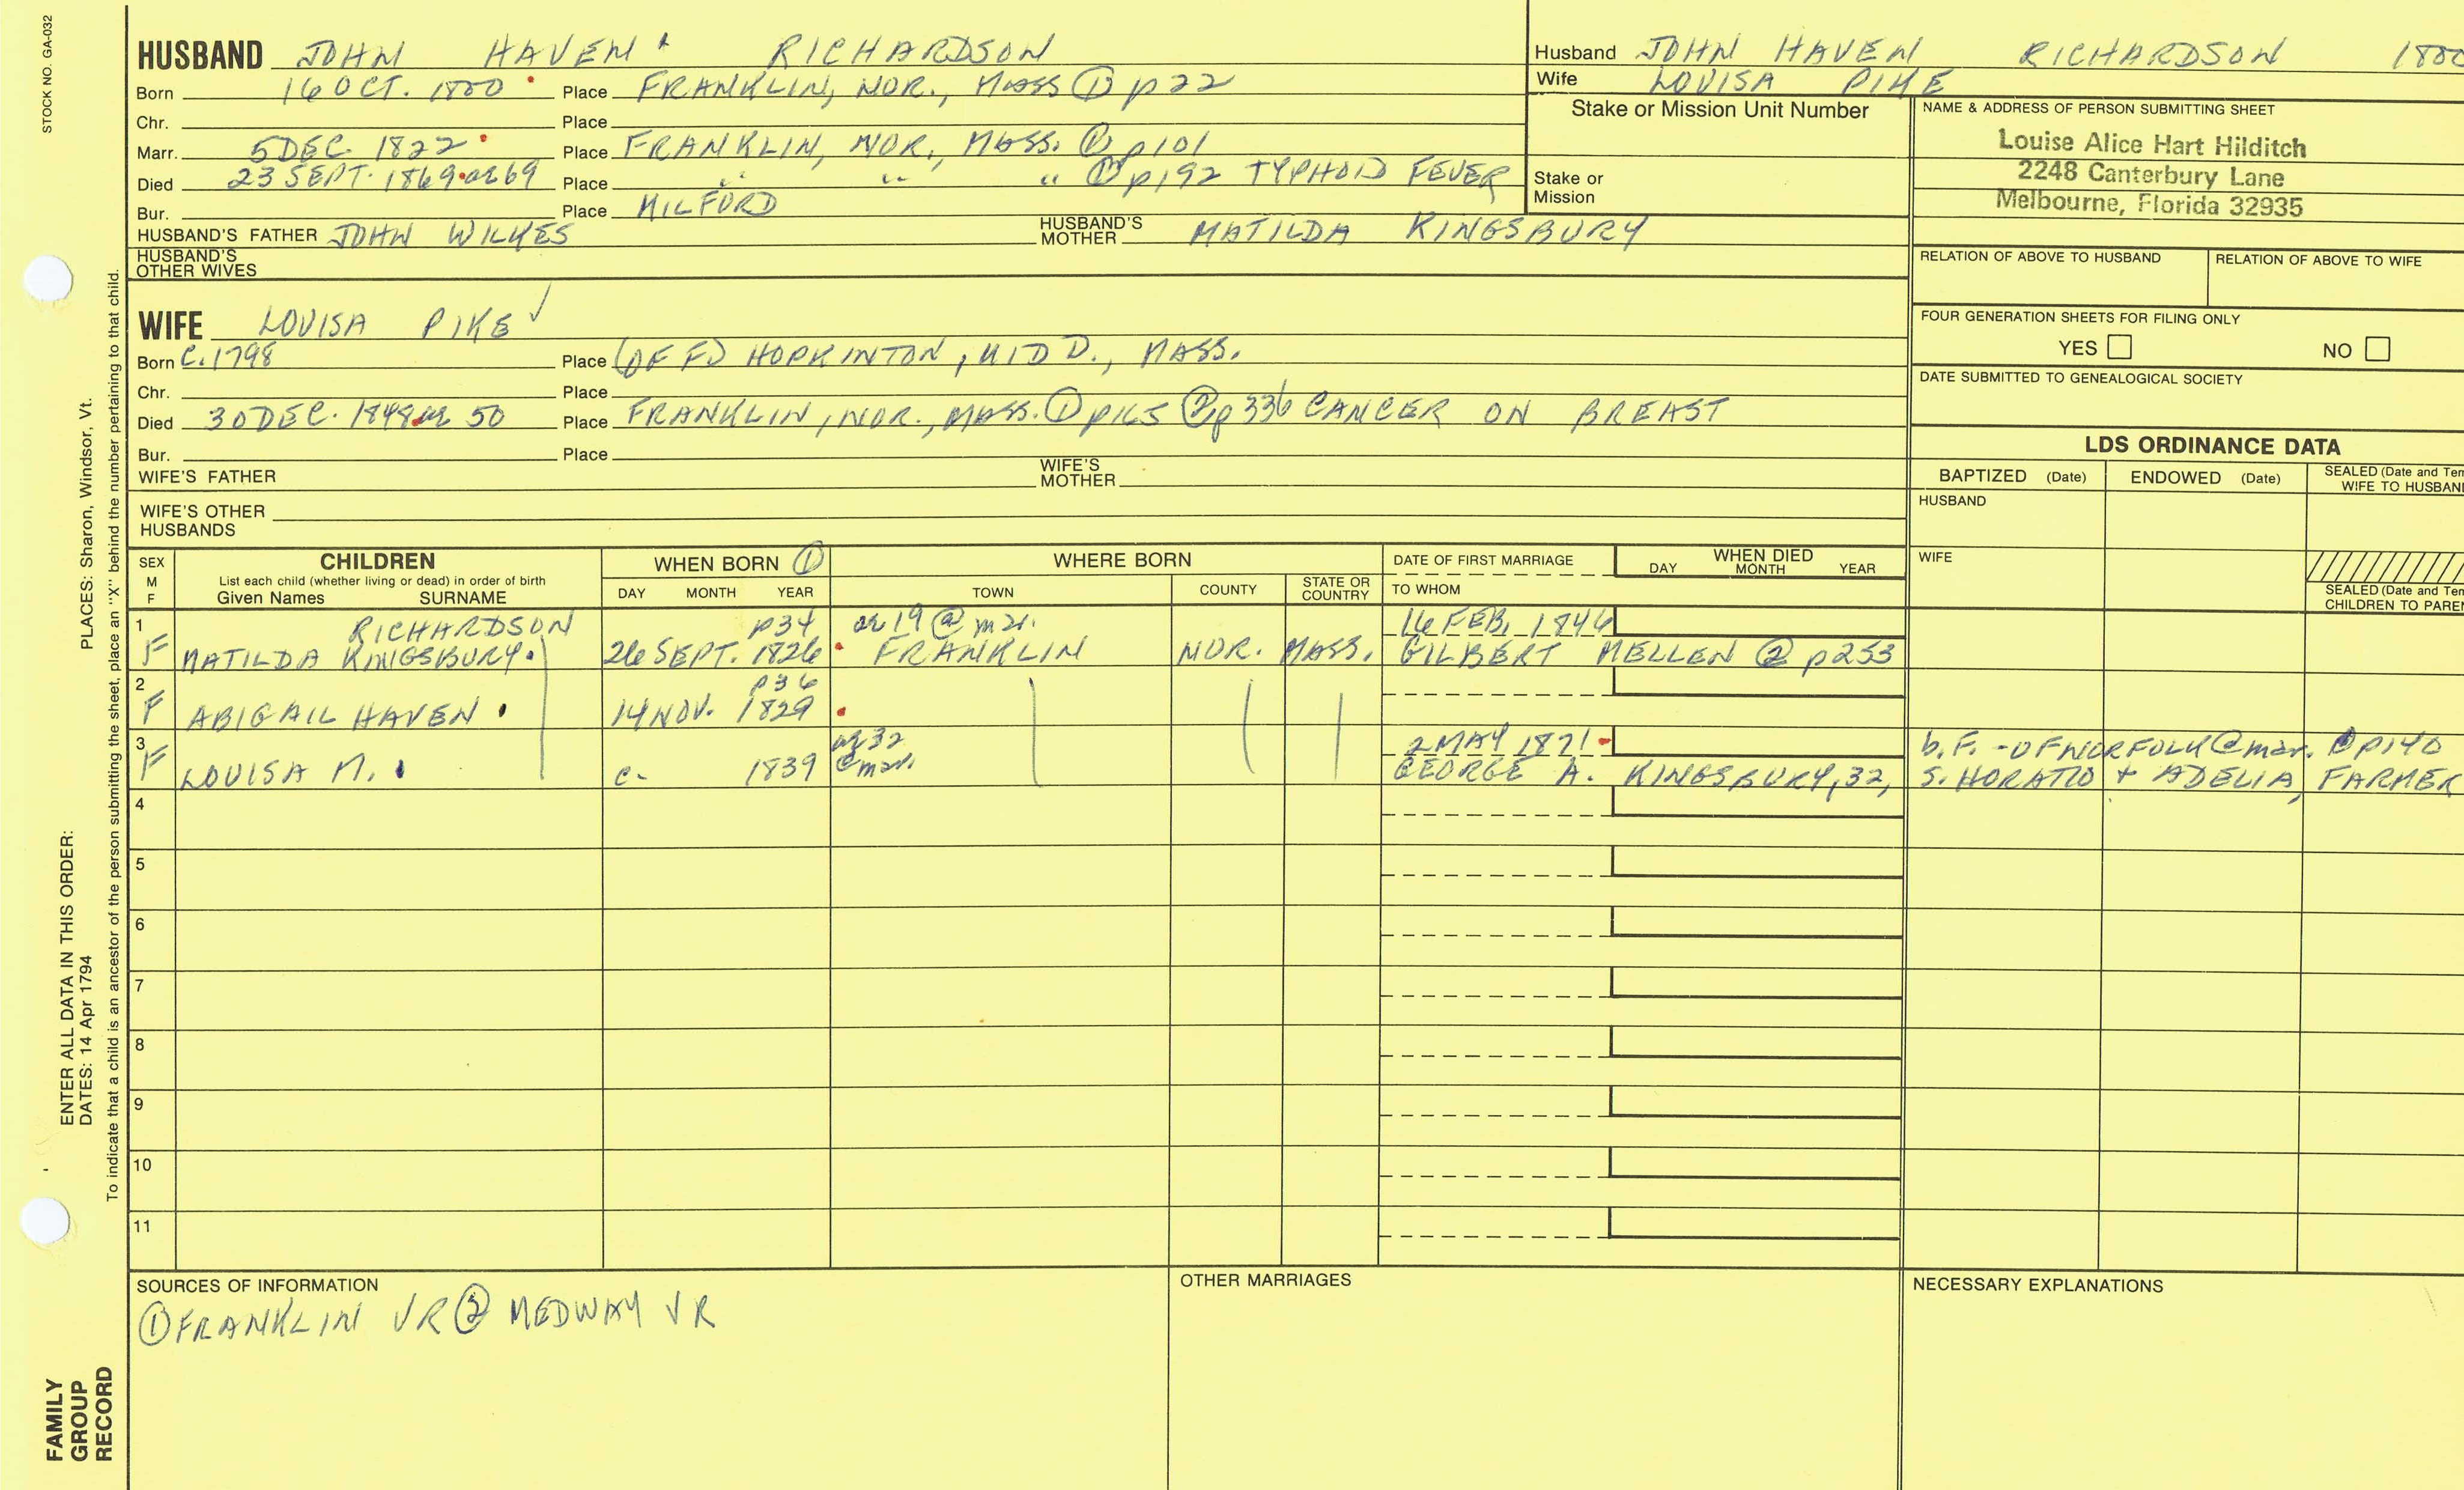 STOCK NO. GA-032
HUSBAND JOHN HAVEN RICHARDSON
Born 16 OCT. 1800 Place FRANKLIN, NOR., MASS ① p22
Chr. Place
Marr. 5 DEC. 1822 Place FRANKLIN, NOR., MASS. ① p101
Died 23 SEPT. 1869 ae 69 Place " " " ① p192 TYPHOID FEVER
Bur. Place MILFORD
HUSBAND'S FATHER JOHN WILKES HUSBAND'S MOTHER MATILDA KINGSBURY
HUSBAND'S OTHER WIVES
Husband JOHN HAVEN RICHARDSON 1800
Wife LOUISA PIKE
Stake or Mission Unit Number
Stake or Mission
NAME & ADDRESS OF PERSON SUBMITTING SHEET
Louise Alice Hart Hilditch
2248 Canterbury Lane
Melbourne, Florida 32935
RELATION OF ABOVE TO HUSBAND RELATION OF ABOVE TO WIFE
FOUR GENERATION SHEETS FOR FILING ONLY
YES NO
DATE SUBMITTED TO GENEALOGICAL SOCIETY
WIFE LOUISA PIKE
Born C. 1798 Place (OF F) HOPKINTON, MIDD., MASS.
Chr. Place
Died 30 DEC. 1848 ae 50 Place FRANKLIN, NOR., MASS. ① p165 ② p336 CANCER ON BREAST
Bur. Place
WIFE'S FATHER WIFE'S MOTHER
WIFE'S OTHER HUSBANDS
LDS ORDINANCE DATA
BAPTIZED (Date) ENDOWED (Date) SEALED (Date and Tem
WIFE TO HUSBAN
HUSBAND
WIFE
SEALED (Date and Tem
CHILDREN TO PAREN
SEX M F CHILDREN WHEN BORN ① WHERE BORN DATE OF FIRST MARRIAGE WHEN DIED
List each child (whether living or dead) in order of birth
Given Names SURNAME DAY MONTH YEAR TOWN COUNTY STATE OR COUNTRY TO WHOM DAY MONTH YEAR
1 RICHARDSON p34 ae 19 @ mar. 16 FEB. 1846
F MATILDA KINGSBURY 26 SEPT. 1826 FRANKLIN NOR. MASS. GILBERT MELLEN ② p253
2 p36
F ABIGAIL HAVEN 14 NOV. 1829
3 ae 32 2 MAY 1871 b. F. - OF NORFOLK @ mar. ① p140
F LOUISA M. c- 1839 @ mar. GEORGE A. KINGSBURY, 32, S. HORATIO + ADELIA, FARMER
4
5
6
7
8
9
10
11
SOURCES OF INFORMATION
① FRANKLIN VR ② MEDWAY VR
OTHER MARRIAGES
NECESSARY EXPLANATIONS
ENTER ALL DATA IN THIS ORDER:
DATES: 14 Apr 1794 PLACES: Sharon, Windsor, Vt.
To indicate that a child is an ancestor of the person submitting the sheet, place an "X" behind the number pertaining to that child.
FAMILY
GROUP
RECORD